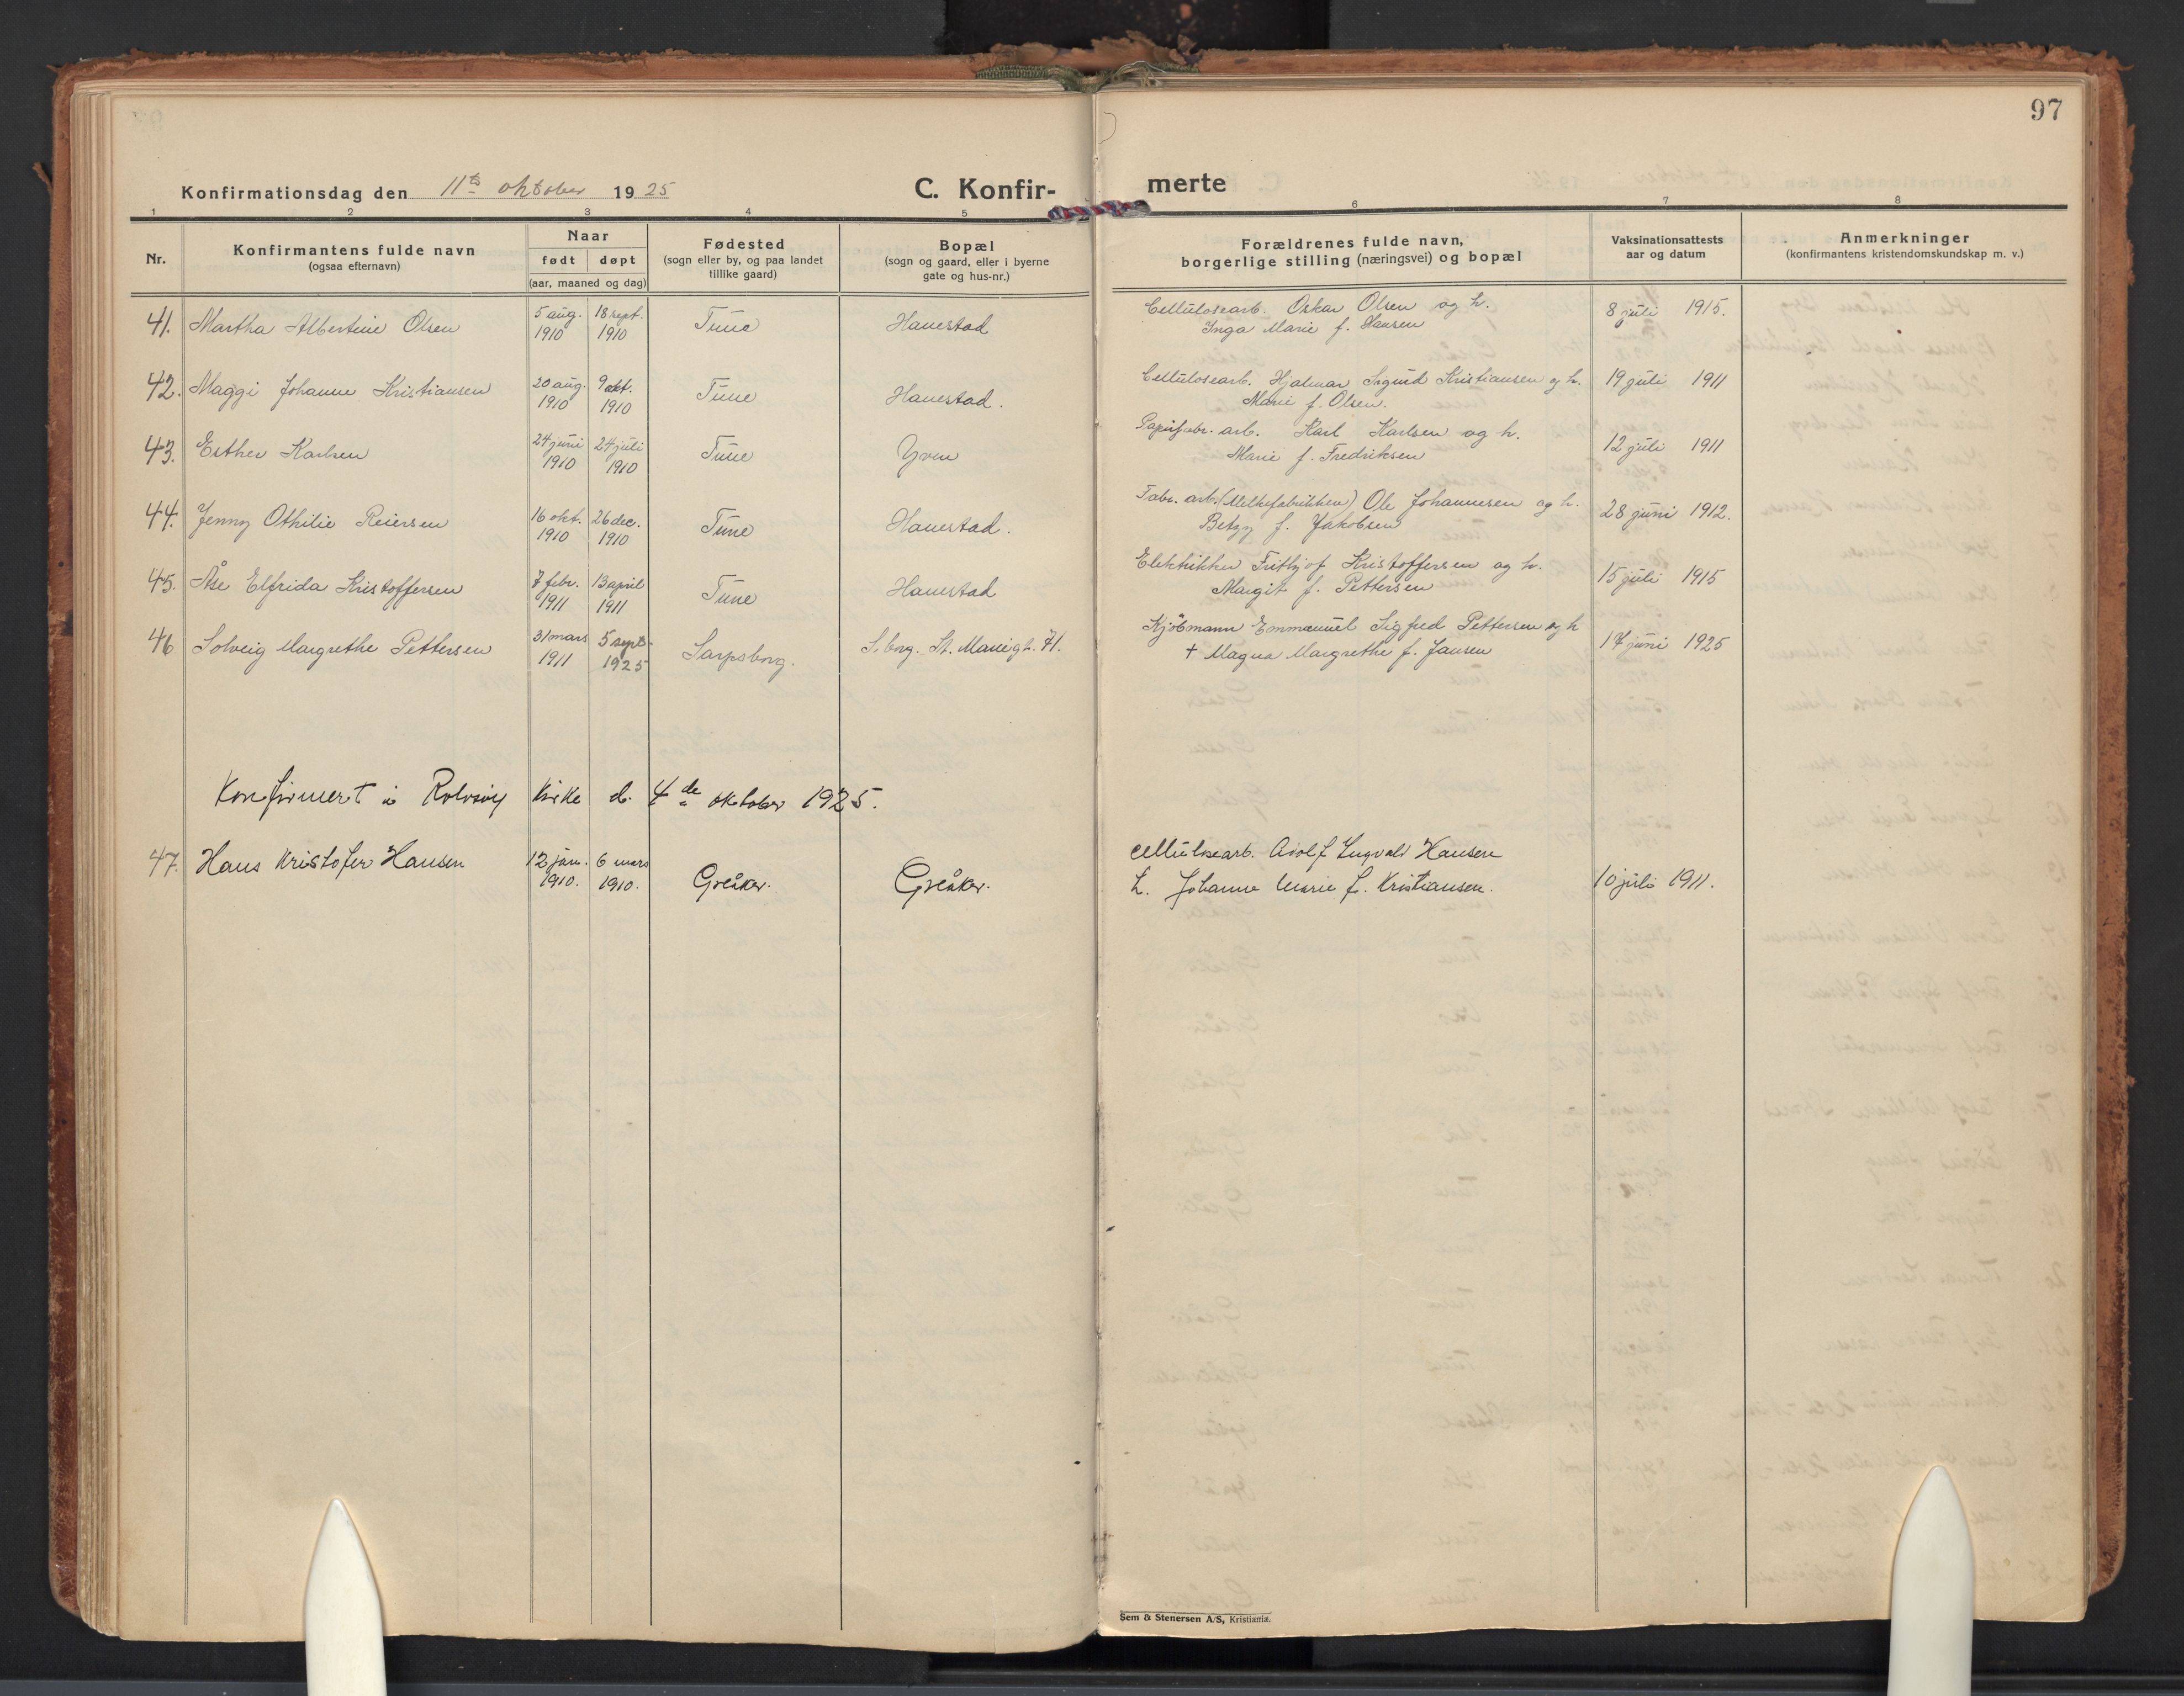 97
Konfirmationsdag den 11te oktober 1925
C. Konfir-
merte
1 2 3 4 5 6 7 8
Nr.
Konfirmantens fulde navn
(ogsaa efternavn)
Naar
født døpt
(aar, maaned og dag)
Fødested
(sogn eller by, og paa landet
tillike gaard)
Bopæl
(sogn og gaard, eller i byerne
gate og hus-nr.)
Forældrenes fulde navn,
borgerlige stilling (næringsvei) og bopæl
Vaksinationsattests
aar og datum
Anmerkninger
(konfirmantens kristendomskundskap m. v.)
41. Martha Albertine Olsen 5 aug. 1910 18 sept. 1910 Tune Hanestad Cellulosearb. Oskar Olsen og h. 8 juli 1915.
Inga Marie f. Hansen
42. Maggi Johanne Kristiansen 20 aug. 1910 9 okt. 1910 Tune Hanestad. Cellulosearb. Hjalmar Sigurd Kristiansen og h. 19 juli 1911
Marie f. Olsen.
43. Esther Karlsen 24 juni 1910 24 juli 1910 Tune Yven Papirfabr. arb. Karl Karlsen og h. 12 juli 1911
Marie f. Fredriksen
44. Jenny Othilie Reiersen 16 okt. 1910 26 dec. 1910 Tune Hanestad. Fabr. arb. (Melkefabrikken) Ole Johannesen og h. 28 juni 1912.
Betzy f. Jakobsen
45. Åse Elfrida Kristoffersen 7 febr. 1911 13 april 1911 Tune Hanestad Elektriker Frithjof Kristoffersen og h. 15 juli 1915
Margit f. Pettersen
46 Solveig Margrethe Pettersen 31 mars 1911 5 sept. 1925 Sarpsborg. S.borg. St. Mariegt. 71. Kjöbmann Emmanuel Sigfred Pettersen og h 17 juni 1925
+ Magna Margrethe f. Jansen
Konfirmert i Rolvsøy Kirke d. 4de oktober 1925.
47. Hans Kristofer Hansen 12 jan. 1910. 6 mars 1910. Greåker. Greåker. Cellulosearb. Adolf Ingvald Hansen
h. Johanne Marie f. Kristiansen. 10 juli 1911.
Sem & Stenersen A/S, Kristiania.